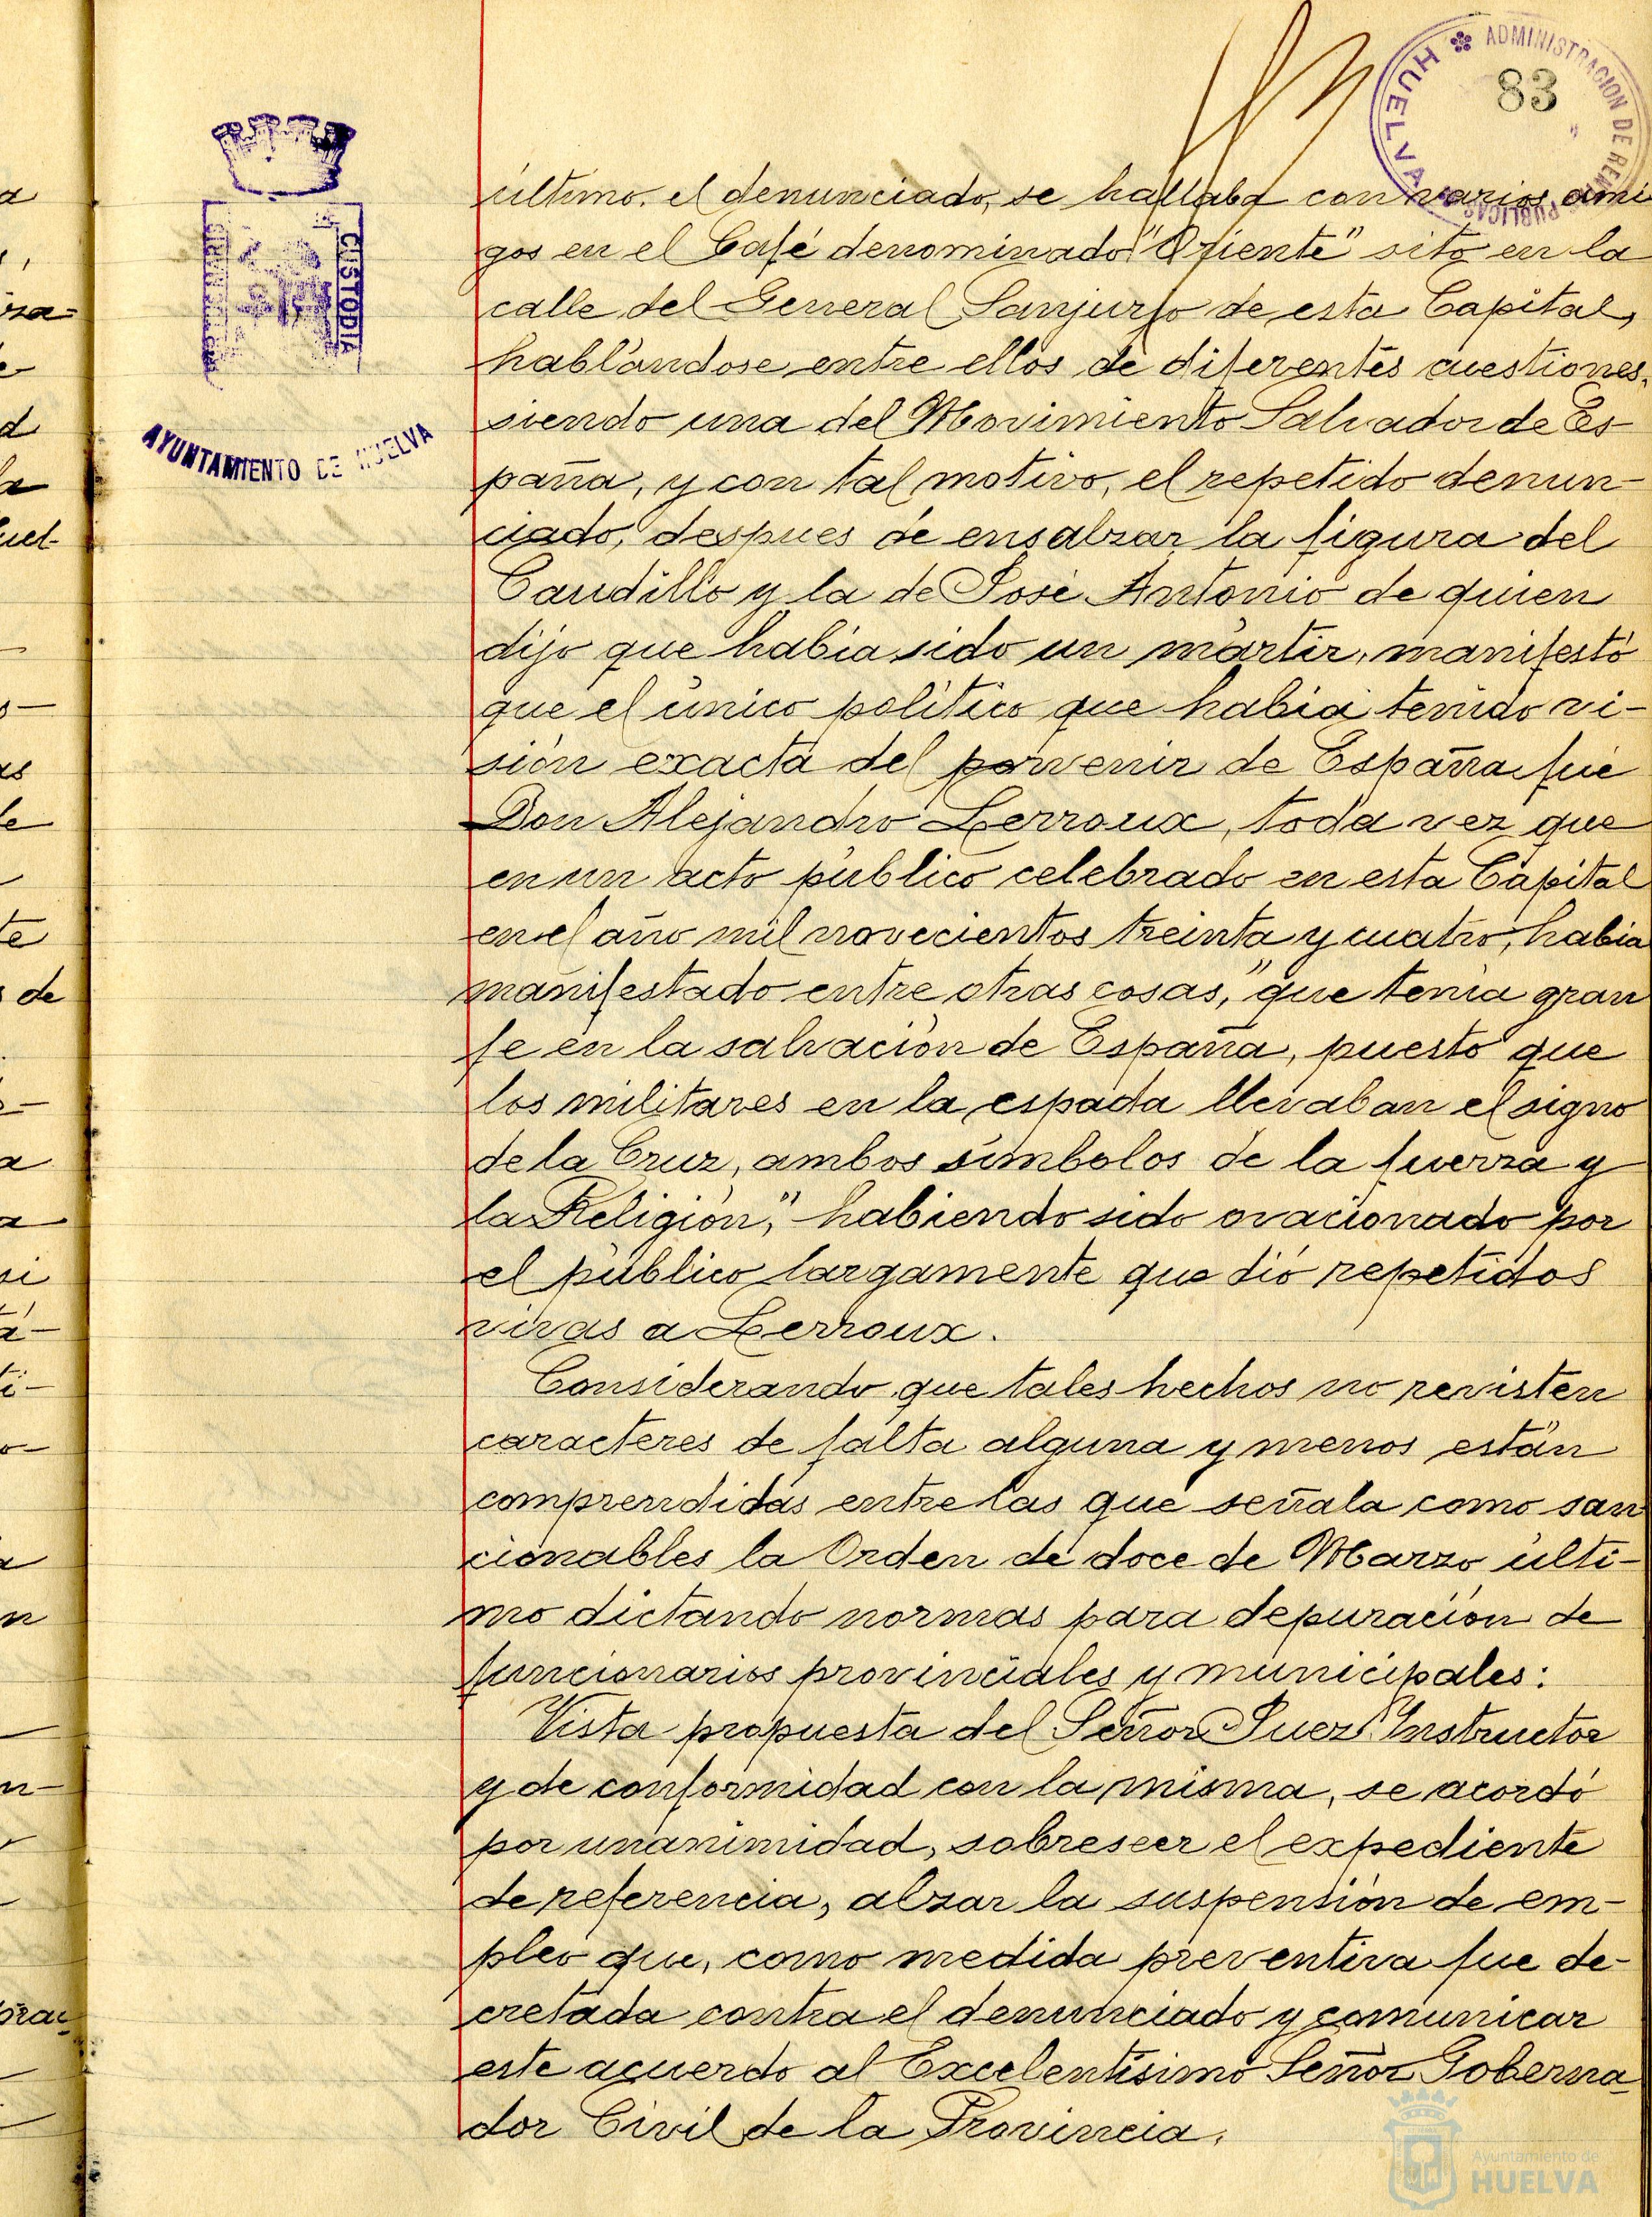 ADMINISTRACION DE RENTAS PUBLICAS
HUELVA
83
CUSTODIA
AYUNTAMIENTO DE HUELVA
último, el denunciado, se hallaba con varios ami
gos en el Café denominado "Oriente" sito en la
calle del General Sanjurjo de esta Capital,
hablándose entre ellos de diferentes cuestiones,
siendo una del Movimiento Salvador de Es-
paña, y con tal motivo, el repetido denun-
ciado, despues de ensalzar la figura del
Caudillo y la de José Antonio de quien
dijo que habia sido un mártir, manifestó
que el único politico que habia tenido vi-
sión exacta del porvenir de España fué
Don Alejandro Lerroux, toda vez que
en un acto público celebrado en esta Capital
en el año mil novecientos treinta y cuatro, habia
manifestado entre otras cosas, "que tenia gran
fe en la salvación de España, puesto que
los militares en la espada llevaban el signo
de la Cruz, ambos simbolos de la fuerza y
la Religión", habiendo sido ovacionado por
el público largamente que dió repetidos
vivas a Lerroux.
Considerando que tales hechos no revisten
caracteres de falta alguna y menos están
comprendidas entre las que señala como san
cionables la Orden de doce de Marzo últi-
mo dictando normas para depuración de
funcionarios provinciales y municipales:
Vista propuesta del Señor Juez Instructor
y de conformidad con la misma, se acordó
por unanimidad, sobreseer el expediente
de referencia, alzar la suspensión de em-
pleo que, como medida preventiva fue de-
cretada contra el denunciado y comunicar
este acuerdo al Excelentísimo Señor Goberna
dor Civil de la Provincia.
Ayuntamiento de
HUELVA